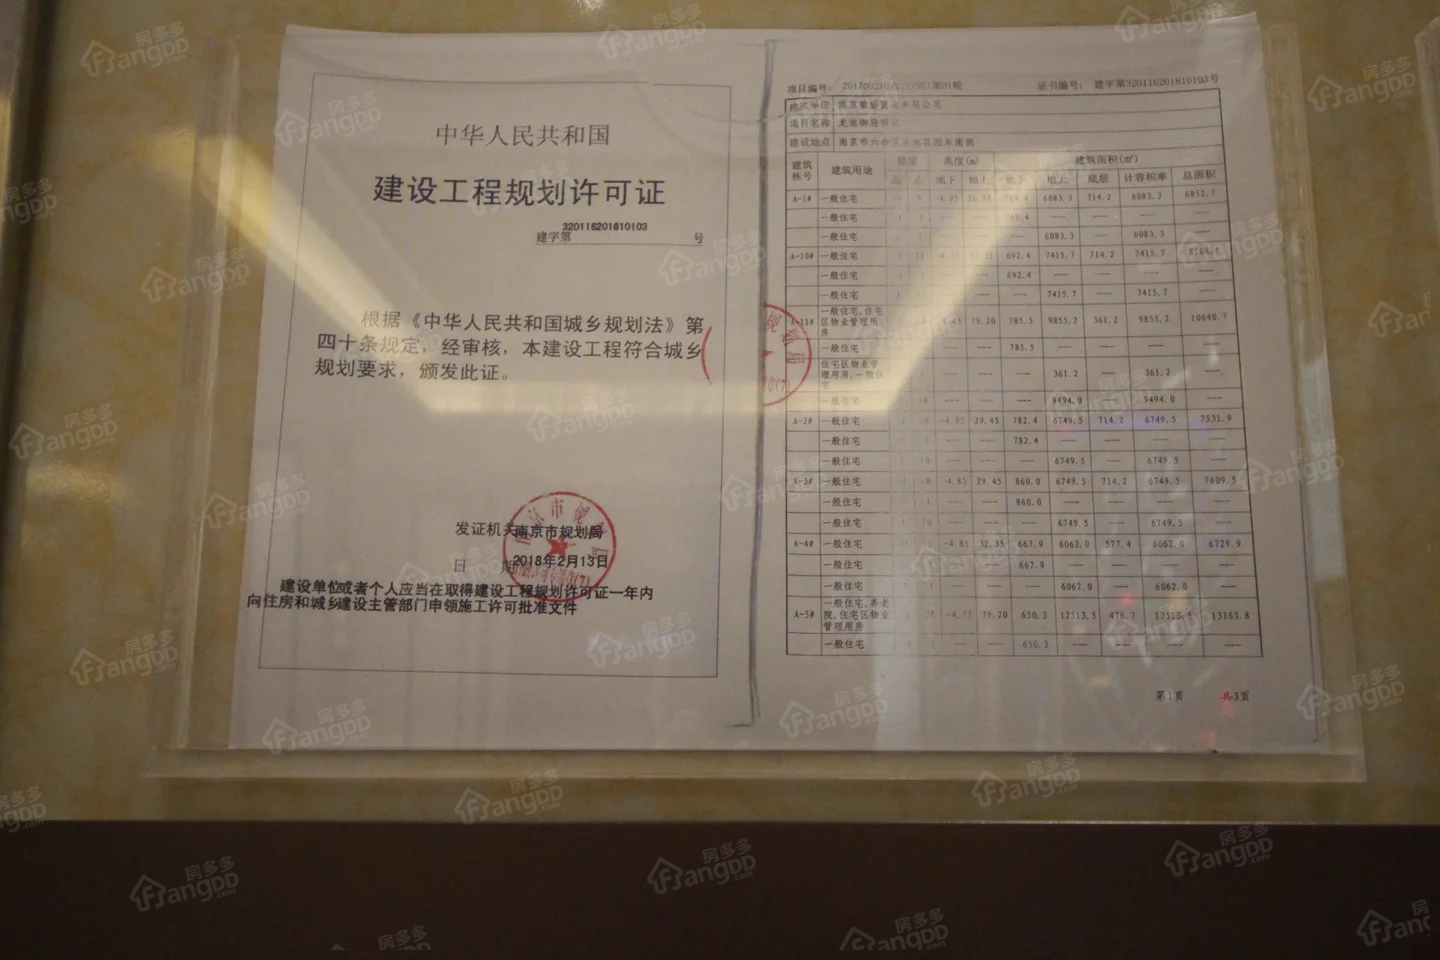 中华人民共和国
建设工程规划许可证
建字第 320116201810103 号
根据《中华人民共和国城乡规划法》第
四十条规定，经审核，本建设工程符合城乡
规划要求，颁发此证。
发证机关 南京市规划局
日 期 2018年2月13日
建设单位或者个人应当在取得建设工程规划许可证一年内
向住房和城乡建设主管部门申领施工许可批准文件
项目编号： 证书编号： 建字第320116201810103号
建设单位 有限公司
项目名称 龙池御府
建设地点 南京市六合区
建筑栋号 建筑用途 高度(m) 建筑面积(㎡)
地下 地上 地下 地上 底层 计容积率 总面积
A-1# 一般住宅 6083.3 714.2 6083.3 6852.7
一般住宅 769.4 —— —— —— ——
一般住宅 —— 6083.3 —— 6083.3 ——
A-10# 一般住宅 692.4 7415.7 714.2 7415.7 8108.1
一般住宅 692.4 —— —— —— ——
一般住宅 —— 7415.7 —— 7415.7 ——
A-11# 一般住宅,住宅区物业管理用房 79.20 785.5 9855.2 361.2 9855.2 10640.7
一般住宅 785.5 —— —— —— ——
住宅区物业管理用房,一般住宅 —— 361.2 —— 361.2 ——
一般住宅 —— 9494.0 —— 9494.0 ——
A-2# 一般住宅 -4.95 29.45 782.4 6749.5 714.2 6749.5 7531.9
一般住宅 —— —— 782.4 —— —— —— ——
一般住宅 —— —— —— 6749.5 —— 6749.5 ——
A-3# 一般住宅 -4.85 29.45 860.0 6749.5 714.2 6749.5 7609.5
一般住宅 —— —— 860.0 —— —— —— ——
一般住宅 —— —— —— 6749.5 —— 6749.5 ——
A-4# 一般住宅 32.35 667.9 6062.0 577.4 6062.0 6729.9
一般住宅 —— —— 667.9 —— —— —— ——
一般住宅 —— —— —— 6062.0 —— 6062.0 ——
A-5# 一般住宅,养老院,住宅区物业管理用房 79.20 650.3 12513.5 476.7 12513.5 13163.8
一般住宅 —— —— 650.3 —— —— —— ——
第1页 共3页
房多多
FangDD.com